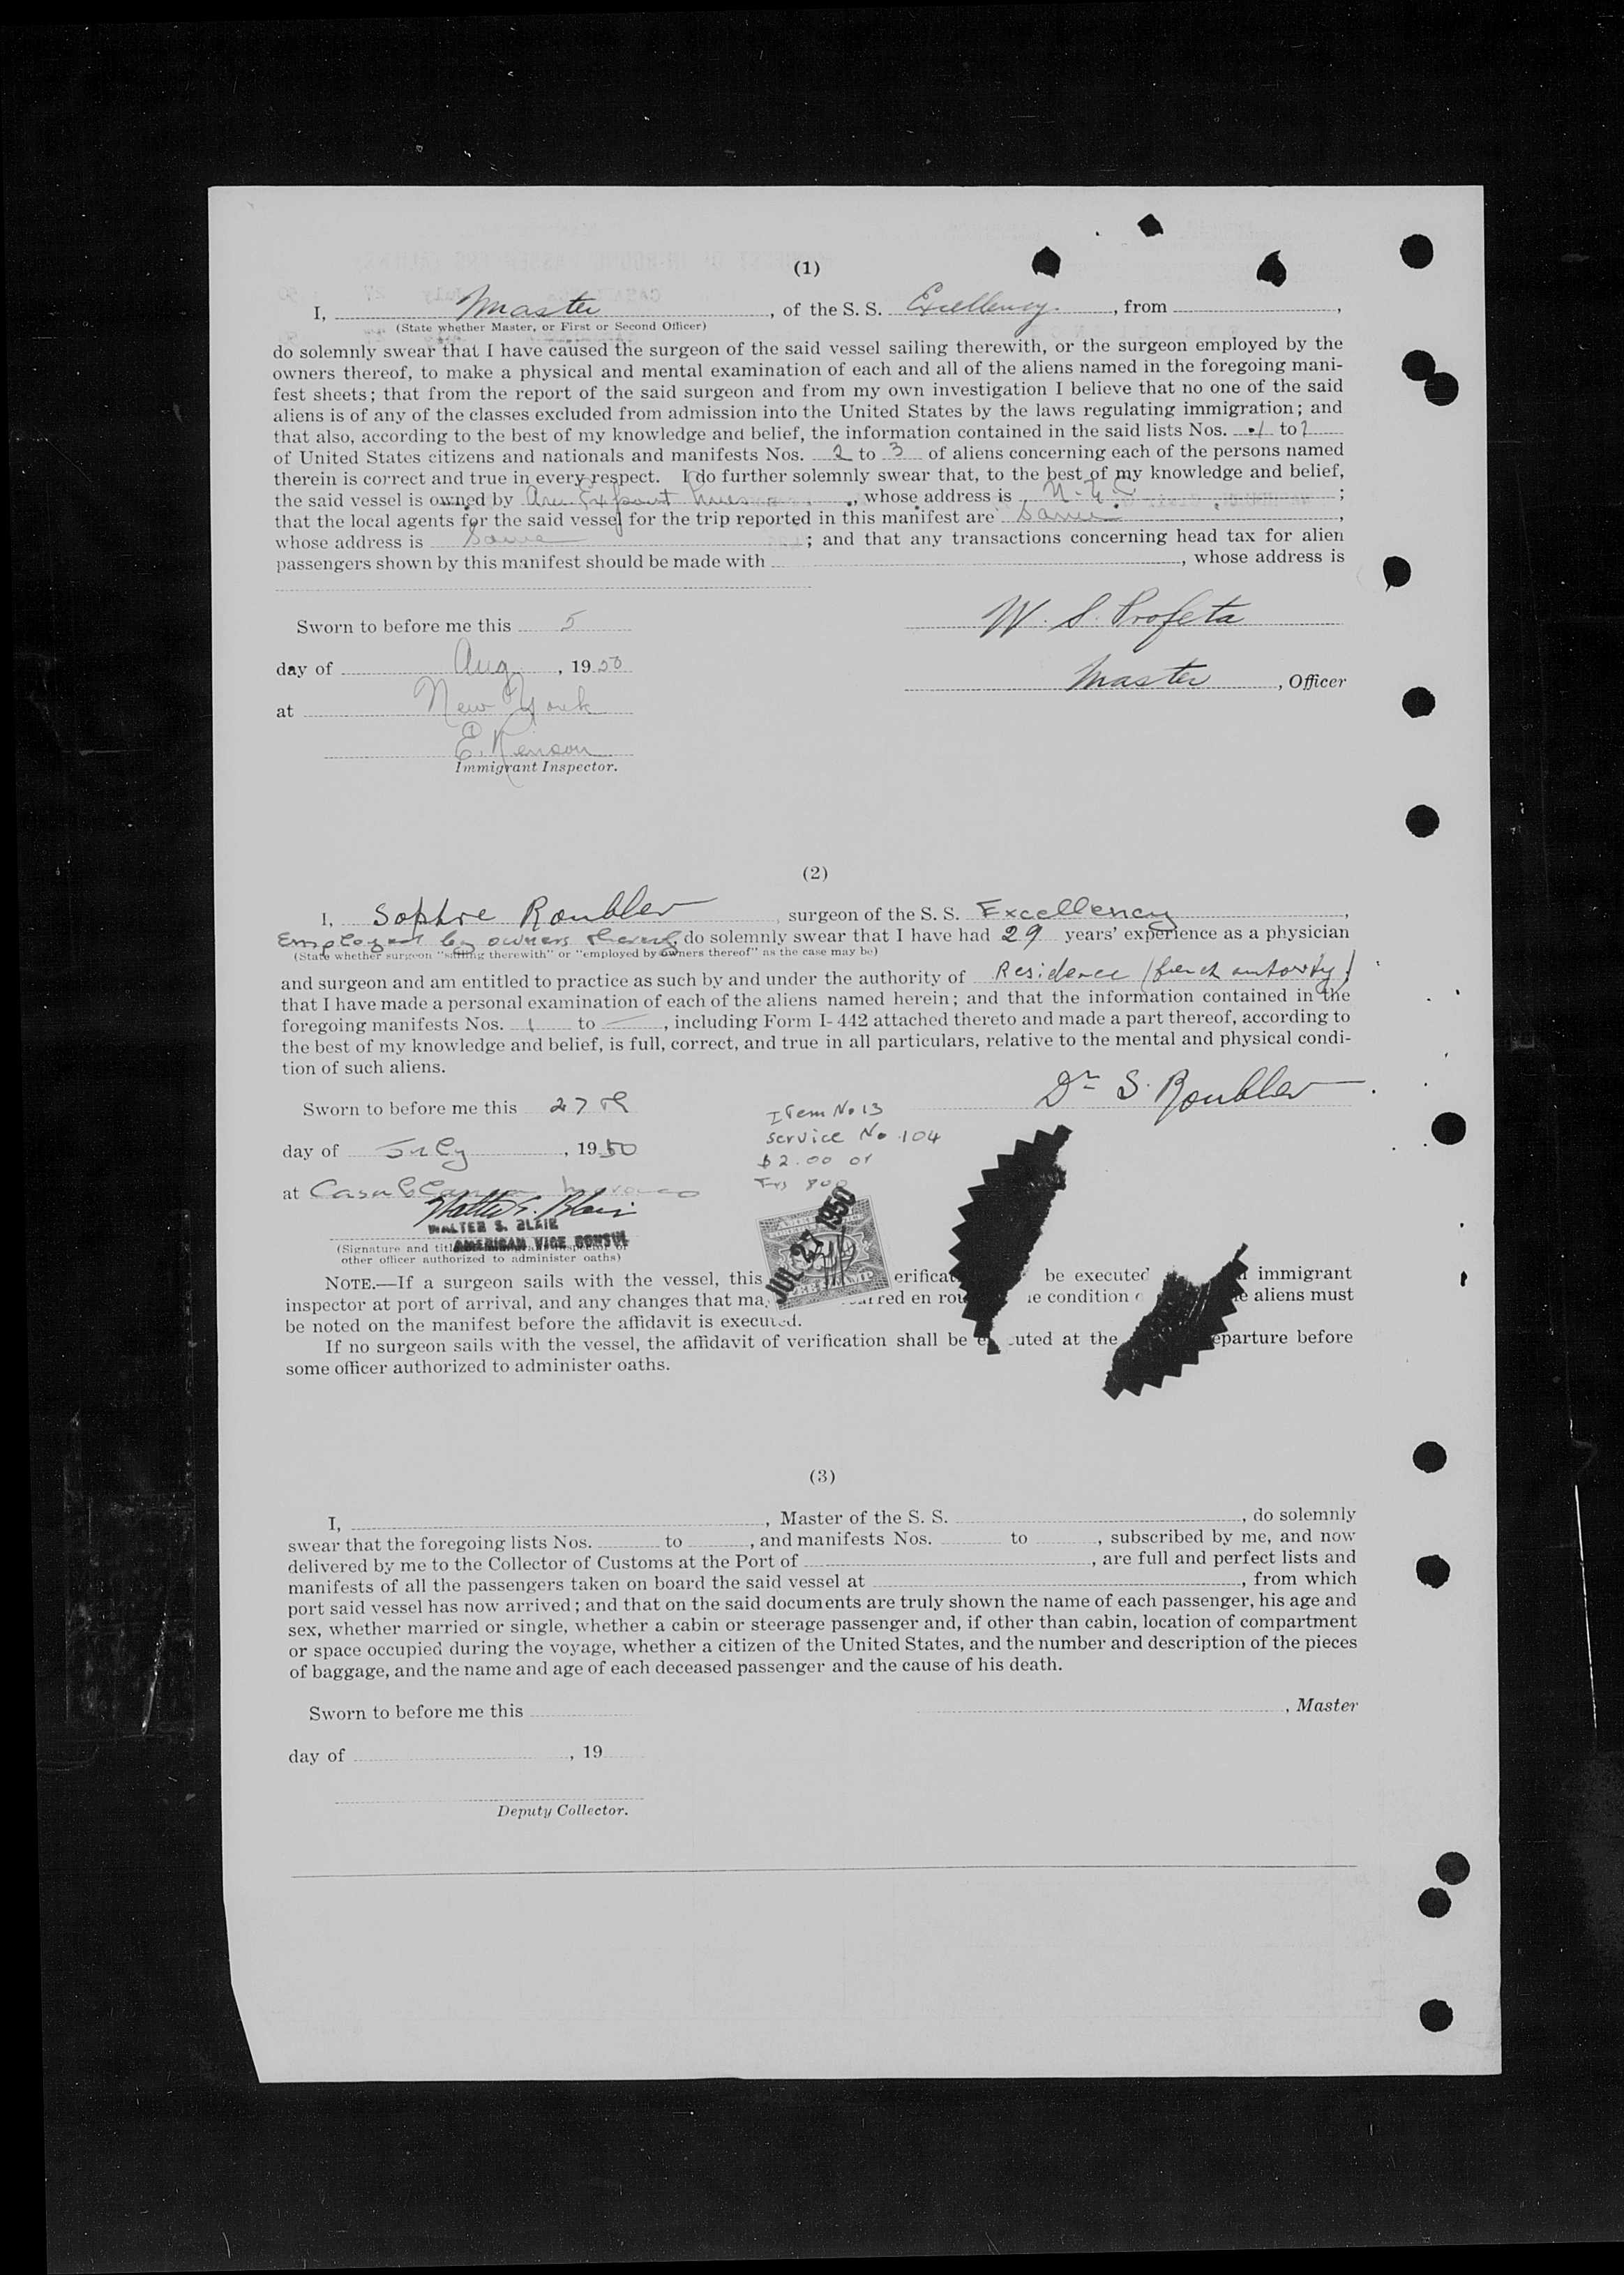 (1)
I, Master, of the S. S. Excellency, from
(State whether Master, or First or Second Officer)
do solemnly swear that I have caused the surgeon of the said vessel sailing therewith, or the surgeon employed by the
owners thereof, to make a physical and mental examination of each and all of the aliens named in the foregoing mani-
fest sheets; that from the report of the said surgeon and from my own investigation I believe that no one of the said
aliens is of any of the classes excluded from admission into the United States by the laws regulating immigration; and
that also, according to the best of my knowledge and belief, the information contained in the said lists Nos. 1 to 1
of United States citizens and nationals and manifests Nos. 2 to 3 of aliens concerning each of the persons named
therein is correct and true in every respect. I do further solemnly swear that, to the best of my knowledge and belief,
the said vessel is owned by Am. Export Lines, whose address is N.Y.C.;
that the local agents for the said vessel for the trip reported in this manifest are same,
whose address is same; and that any transactions concerning head tax for alien
passengers shown by this manifest should be made with , whose address is
Sworn to before me this 5
W. S. Profeta
day of Aug, 1950
Master, Officer
at New York
Immigrant Inspector.
(2)
I, Sophie Roubler, surgeon of the S. S. Excellency,
Employed by owners thereof, do solemnly swear that I have had 29 years' experience as a physician
(State whether surgeon "sailing therewith" or "employed by owners thereof" as the case may be)
and surgeon and am entitled to practice as such by and under the authority of Residence (french autority)
that I have made a personal examination of each of the aliens named herein; and that the information contained in the
foregoing manifests Nos. 1 to —, including Form I-442 attached thereto and made a part thereof, according to
the best of my knowledge and belief, is full, correct, and true in all particulars, relative to the mental and physical condi-
tion of such aliens.
Dr S. Roubler
Sworn to before me this 27th
Item No 13
Service No 104
day of July, 1950
$2.00 or
Frs 800
at Casablanca Morocco
Walter S. Blair
WALTER S. BLAIR
AMERICAN VICE CONSUL
JUL 27 1950
(Signature and titl
other officer authorized to administer oaths)
NOTE.—If a surgeon sails with the vessel, this erificat be executed immigrant
inspector at port of arrival, and any changes that ma rred en rou e condition e aliens must
be noted on the manifest before the affidavit is executed.
If no surgeon sails with the vessel, the affidavit of verification shall be e cuted at the eparture before
some officer authorized to administer oaths.
(3)
I, , Master of the S. S. , do solemnly
swear that the foregoing lists Nos. to , and manifests Nos. to , subscribed by me, and now
delivered by me to the Collector of Customs at the Port of , are full and perfect lists and
manifests of all the passengers taken on board the said vessel at , from which
port said vessel has now arrived; and that on the said documents are truly shown the name of each passenger, his age and
sex, whether married or single, whether a cabin or steerage passenger and, if other than cabin, location of compartment
or space occupied during the voyage, whether a citizen of the United States, and the number and description of the pieces
of baggage, and the name and age of each deceased passenger and the cause of his death.
Sworn to before me this
, Master
day of , 19
Deputy Collector.